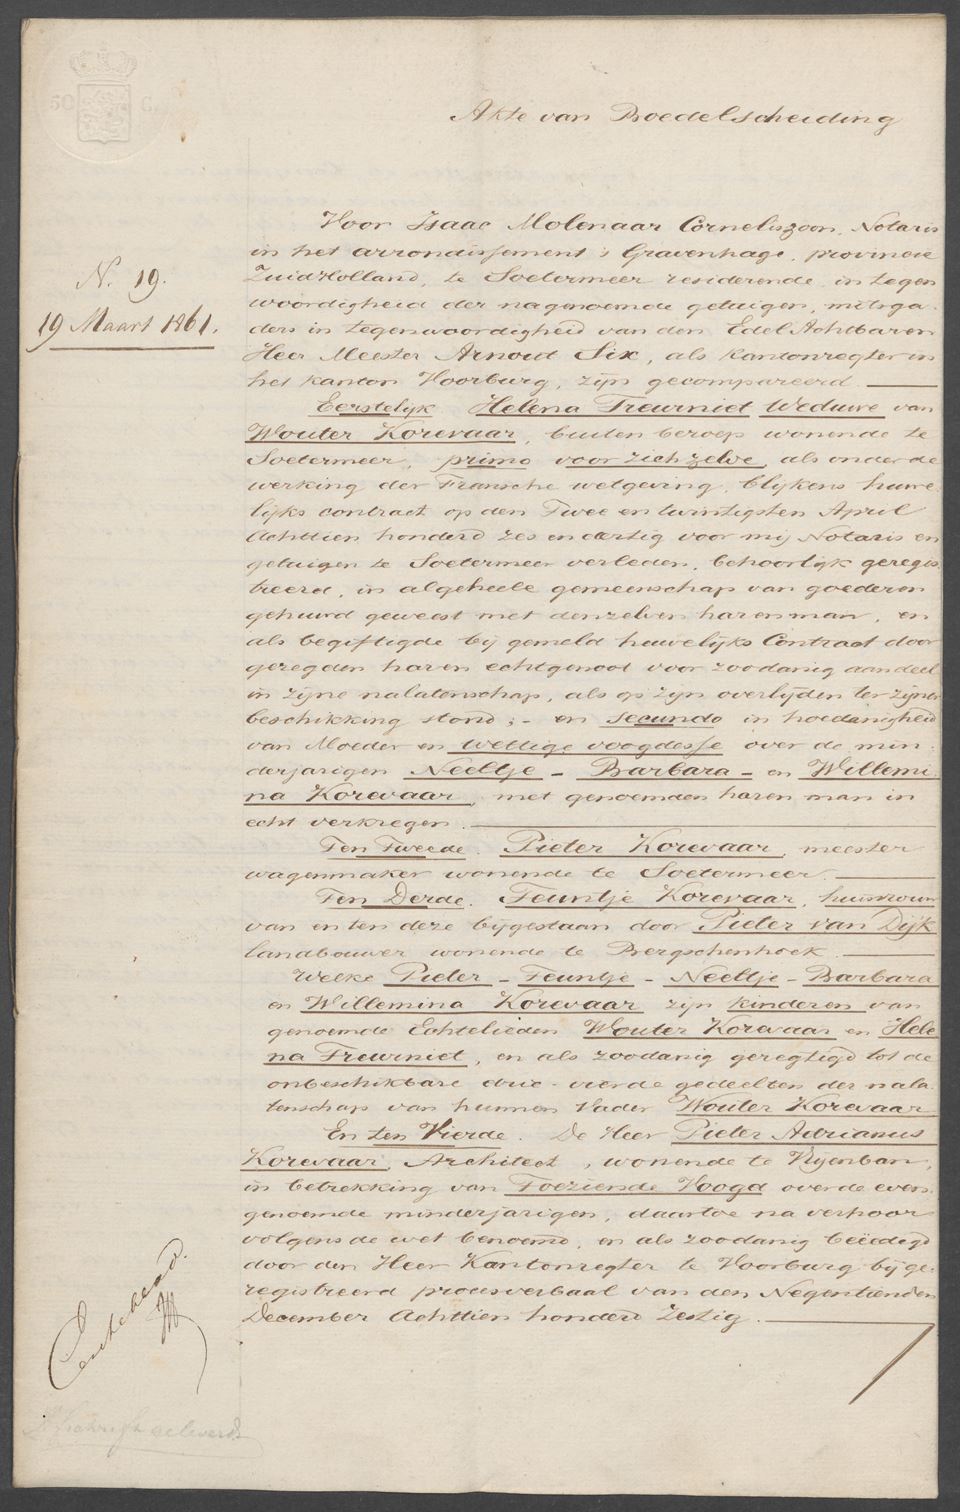 50 C.
Akte van Boedelscheiding
Voor Isaac Molenaar Corneliszoon, Notaris
in het arrondissement 's Gravenhage, provincie
Zuid Holland, te Soetermeer residerende, in tegen
woordigheid der nagenoemde getuigen, mitsga-
ders in tegenwoordigheid van den Edel Achtbaren
Heer Meester Arnoud Six, als kantonregter in
het kanton Voorburg, zijn gecompareerd.
N. 19.
19 Maart 1861.
Eerstelijk Helena Treurniet Weduwe van
Wouter Korevaar, buiten beroep wonende te
Soetermeer, primo voor zichzelve, als onder de
werking der Fransche wetgeving, blijkens huwe-
lijks contract op den Twee en twintigsten April
Achttien honderd zes en dertig voor mij Notaris en
getuigen te Soetermeer verleden, behoorlijk geregis
treerd, in algeheele gemeenschap van goederen
gehuwd geweest met denzelven haren man, en
als begiftigde bij gemeld huwelijks Contract door
gezegden haren echtgenoot voor zoodanig aandeel
in zijne nalatenschap, als op zijn overlijden ter zijner
beschikking stond; - en secundo in hoedanigheid
van Moeder en wettige voogdesse over de min-
derjarigen Neeltje - Barbara - en Willemi
na Korevaar, met genoemden haren man in
echt verkregen.
Ten Tweede. Pieter Korevaar, meester
wagenmaker wonende te Soetermeer.
Ten Derde. Teuntje Korevaar, huisvrouw
van en ten deze bijgestaan door Pieter van Dijk
landbouwer wonende te Bergschenhoek.
Welke Pieter - Teuntje - Neeltje - Barbara
en Willemina Korevaar zijn kinderen van
genoemde Echtelieden Wouter Korevaar en Hele
na Treurniet, en als zoodanig geregtigd tot de
onbeschikbare drie-vierde gedeelten der nala-
tenschap van hunnen Vader Wouter Korevaar
En ten Vierde. De Heer Pieter Adrianus
Korevaar, Architect, wonende te
in betrekking van Toeziende Voogd over de even-
genoemde minderjarigen, daartoe na verhoor
volgens de wet benoemd, en als zoodanig beëedigd
door den Heer Kantonregter te Voorburg bij ge-
registreerd procesverbaal van den Negentienden
December Achttien honderd zestig.